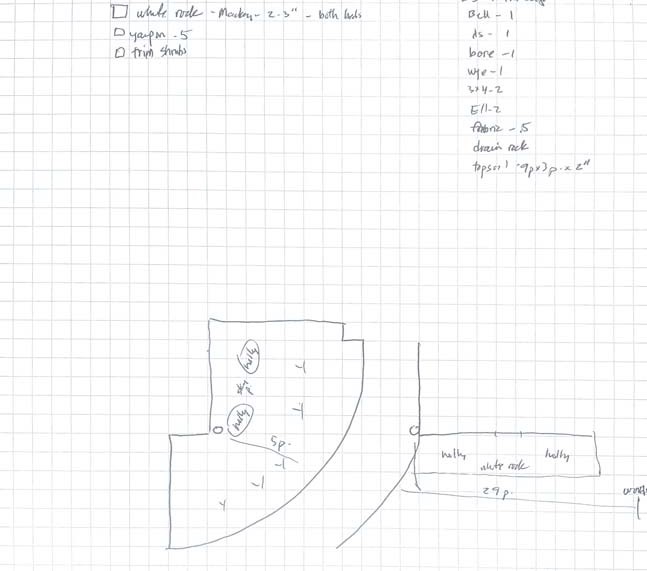 white rock - Mackay - 2-3" - both beds
yaupon - 5
trim shrubs
Bell - 1
ds - 1
bore - 1
wye - 1
3x4-2
Ell-2
fabric - .5
drain rock
topsoil - 9p x 3p x 2"
holly
holly
5p.
holly
holly
white rock
29p.